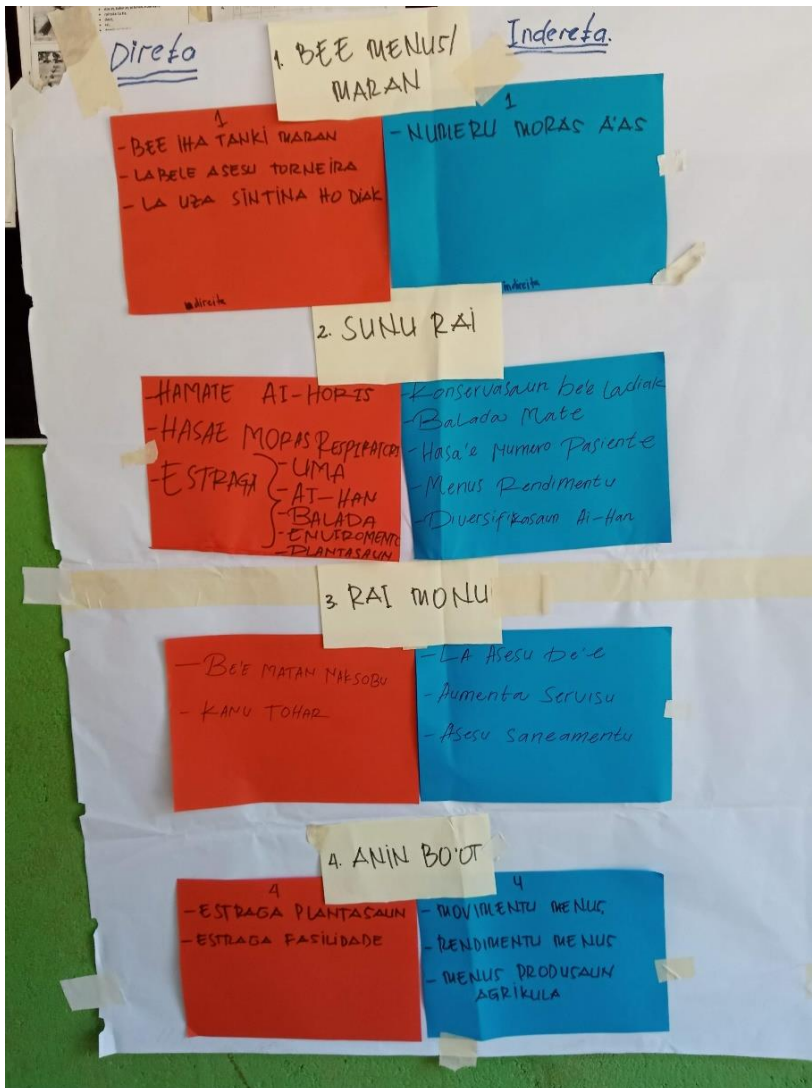 Direta
Indereta.
1. BEE MENUS/
MARAN
1
- BEE IHA TANKI MARAN
- LABELE ASESU TORNEIRA
- LA UZA SINTINA HO DIAK
direita
1
- NUMERU MORAS A'AS
indireita
2. SUNU RAI
- HAMATE AI-HORIS
- HASAE MORAS RESPIRATORI
- ESTRAGA
- UMA
- AI-HAN
- BALADA
- ENVIROMENTO
- PLANTASAUN
- Konservasaun be'e Ladiak
- Balada Mate
- Hasa'e Numero Pasiente
- Menus Rendimentu
- Diversifikasaun Ai-Han
3. RAI MONU
- BE'E MATAN NAKSOBU
- KANU TOHAR
- LA Asesu be'e
- Aumenta Servisu
- Asesu Saneamentu
4. ANIN BO'OT
4
- ESTRAGA PLANTASAUN
- ESTRAGA FASILIDADE
4
- MOVIMENTU MENUS
- RENDIMENTU MENUS
- MENUS PRODUSAUN
AGRIKULA